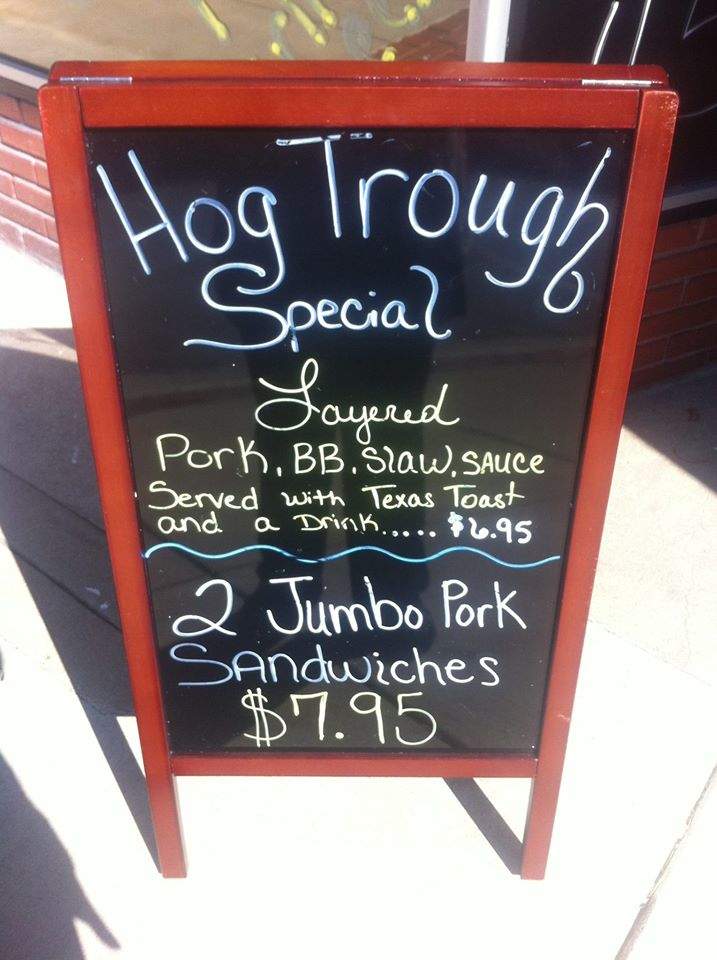 Hog Trough
Special
Layered
Pork, BB, Slaw, SAUCE
Served with Texas Toast
and a Drink..... $6.95
2 Jumbo Pork
SANdwiches
$7.95